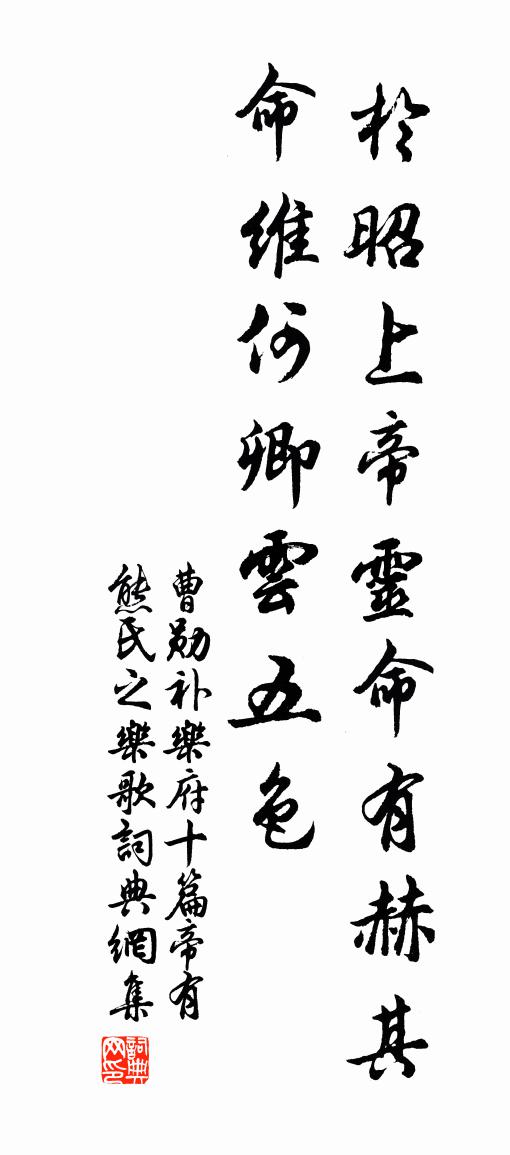 於昭上帝靈命有赫其
命維何卿雲五色
曹勛补樂府十篇帝有
熊氏之樂歌詞典網集
詞典网印